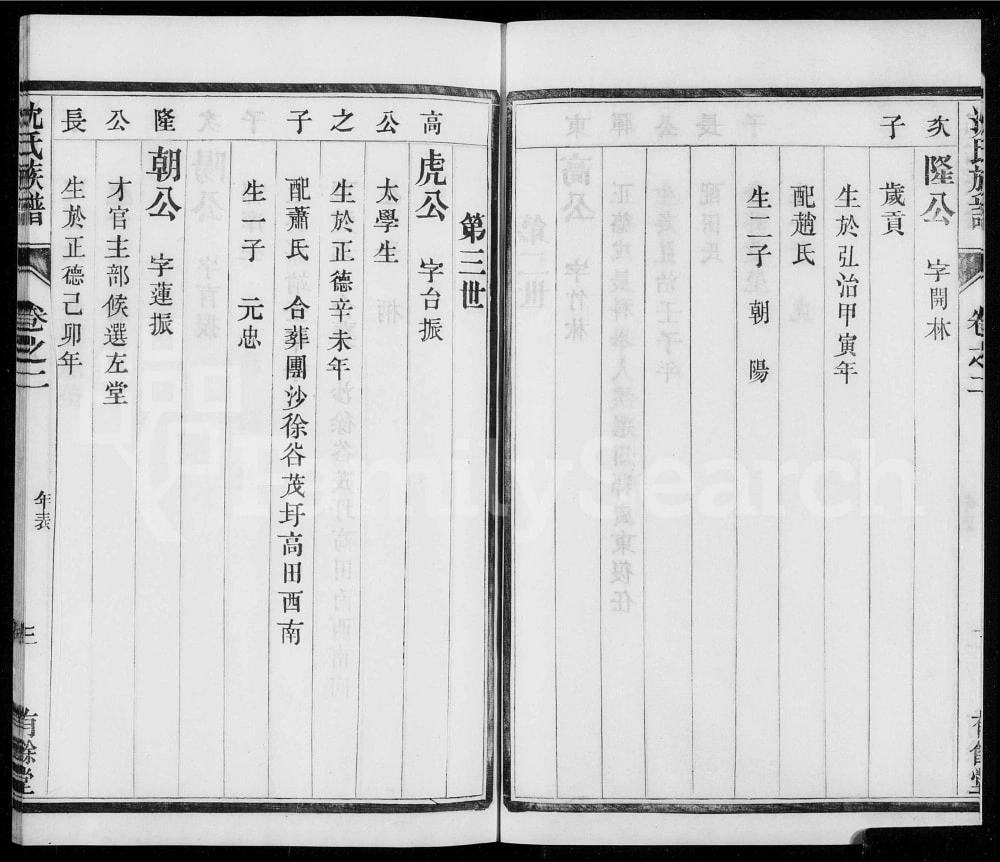 沈氏族譜
卷之二
二
有餘堂
次 隆公 字開林
子 歲貢
生於弘治甲寅年
配趙氏
生二子 朝 陽
第三世
高 虎公 字台振
公 太學生
之 生於正德辛未年
子 配蕭氏 合葬團沙徐谷茂圩高田西南
生子 元忠
隆 朝公 字蓮振
公 才官主部候選左堂
長 生於正德己卯年
沈氏族譜
卷之二
年表
三
有餘堂
FamilySearch